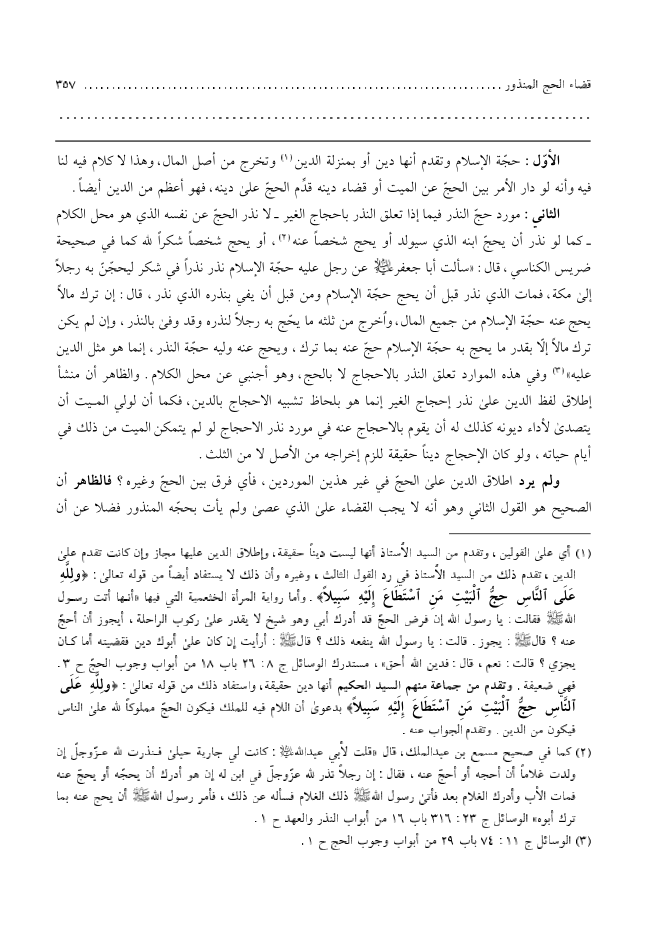 قضاء الحج المنذور ........................................................................... ٣٥٧
...........................................................................................
الأوّل : حجّة الإسلام وتقدم أنها دين أو بمنزلة الدين(١) وتخرج من أصل المال، وهذا لا كلام فيه لنا
فيه وأنه لو دار الأمر بين الحجّ عن الميت أو قضاء دينه قدِّم الحجّ علىٰ دينه، فهو أعظم من الدين أيضاً .
الثاني : مورد حجّ النذر فيما إذا تعلق النذر باحجاج الغير ـ لا نذر الحجّ عن نفسه الذي هو محل الكلام
ـ كما لو نذر أن يحجّ ابنه الذي سيولد أو يحج شخصاً عنه(٢)، أو يحج شخصاً شكراً لله كما في صحيحة
ضريس الكناسي ، قال : «سألت أبا جعفر عن رجل عليه حجّة الإسلام نذر نذراً في شكر ليحجّنّ به رجلاً
إلىٰ مكة، فمات الذي نذر قبل أن يحج حجّة الإسلام ومن قبل أن يفي بنذره الذي نذر ، قال : إن ترك مالاً
يحج عنه حجّة الإسلام من جميع المال، واُخرج من ثلثه ما يحّج به رجلاً لنذره وقد وفىٰ بالنذر ، وإن لم يكن
ترك مالاً إلّا بقدر ما يحج به حجّة الإسلام حجّ عنه بما ترك ، ويحج عنه وليه حجّة النذر ، إنما هو مثل الدين
عليه»(٣) وفي هذه الموارد تعلق النذر بالاحجاج لا بالحج، وهو أجنبي عن محل الكلام . والظاهر أن منشأ
إطلاق لفظ الدين علىٰ نذر إحجاج الغير إنما هو بلحاظ تشبيه الاحجاج بالدين، فكما أن لولي المـيت أن
يتصدىٰ لأداء ديونه كذلك له أن يقوم بالاحجاج عنه في مورد نذر الاحجاج لو لم يتمكن الميت من ذلك في
أيام حياته ، ولو كان الإحجاج ديناً حقيقة للزم إخراجه من الأصل لا من الثلث .
ولم يرد اطلاق الدين علىٰ الحجّ في غير هذين الموردين ، فأي فرق بين الحجّ وغيره ؟ فالظاهر أن
الصحيح هو القول الثاني وهو أنه لا يجب القضاء علىٰ الذي عصىٰ ولم يأت بحجّه المنذور فضلا عن أن
(١) أي علىٰ القولين ، وتقدم من السيد الاُستاذ أنها ليست ديناً حقيقة، وإطلاق الدين عليها مجاز وإن كانت تقدم علىٰ
الدين ، تقدم ذلك من السيد الاُستاذ في رد القول الثالث ، وغيره وأن ذلك لا يستفاد أيضاً من قوله تعالىٰ : ﴿وللَّهِ
عَلَى ٱلنَّاسِ حِجُّ ٱلْبَيْتِ مَنِ ٱسْتَطَاعَ إِلَيْهِ سَبِيلاً﴾ . وأما رواية المرأة الخثعمية التي فيها «أنـها أتت رسـول
الله فقالت : يا رسول الله إن فرض الحجّ قد أدرك أبي وهو شيخ لا يقدر علىٰ ركوب الراحلة ، أيجوز أن أحجّ
عنه ؟ قال : يجوز . قالت : يا رسول الله ينفعه ذلك ؟ قال : أرأيت إن كان علىٰ أبوك دين فقضيته أما كـان
يجزي ؟ قالت : نعم ، قال : فدين الله أحق» ، مستدرك الوسائل ج ٨ : ٢٦ باب ١٨ من أبواب وجوب الحجّ ح ٣ .
فهي ضعيفة . وتقدم من جماعة منهم السيد الحكيم أنها دين حقيقة، واستفاد ذلك من قوله تعالىٰ : ﴿وللَّهِ عَلَى
ٱلنَّاسِ حِجُّ ٱلْبَيْتِ مَنِ ٱسْتَطَاعَ إِلَيْهِ سَبِيلاً﴾ بدعوىٰ أن اللام فيه للملك فيكون الحجّ مملوكاً لله علىٰ الناس
فيكون من الدين . وتقدم الجواب عنه .
(٢) كما في صحيح مسمع بن عبدالملك، قال «قلت لأبي عبدالله : كانت لي جارية حبلىٰ فـنذرت لله عـزّوجلّ إن
ولدت غلاماً أن أحجه أو أحجّ عنه ، فقال : إن رجلاً نذر لله عزّوجلّ في ابن له إن هو أدرك أن يحجّه أو يحجّ عنه
فمات الأب وأدرك الغلام بعد فأتىٰ رسول الله ذلك الغلام فسأله عن ذلك ، فأمر رسول الله أن يحج عنه بما
ترك أبوه» الوسائل ج ٢٣ : ٣١٦ باب ١٦ من أبواب النذر والعهد ح ١ .
(٣) الوسائل ج ١١ : ٧٤ باب ٢٩ من أبواب وجوب الحج ح ١ .